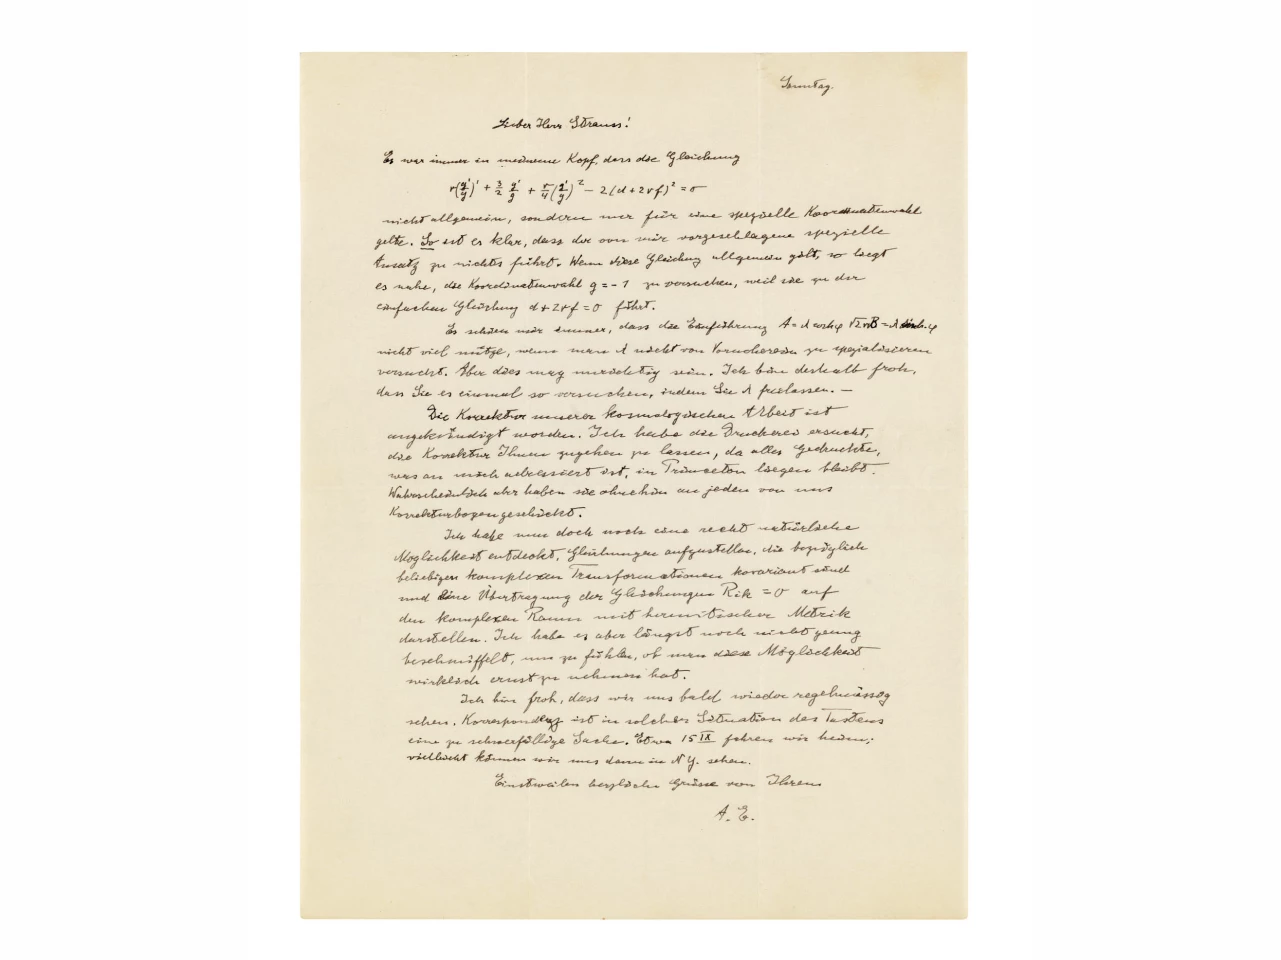 Sonntag.
Lieber Herr Strauss!
Es war immer in meinem Kopf, dass die Gleichung
r(y'/y)' + 3/2 y'/y + r/4 (y'/y)² − 2(d+2rf)² = 0
nicht allgemein, sondern nur für eine spezielle Koordinatenwahl
gelte. So ist es klar, dass der von mir vorgeschlagene spezielle
Ansatz zu nichts führt. Wenn diese Gleichung allgemein gilt, so liegt
es nahe, die Koordinatenwahl g = −1 zu versuchen, weil sie zu der
einfachen Gleichung d+2rf = 0 führt.
Es schien mir immer, dass die Einführung A = λ coshφ √2rB = λ sinhφ
nicht viel nütze, wenn man λ nicht von Vornherein zu spezialisieren
versucht. Aber dies mag unrichtig sein. Ich bin deshalb froh,
dass Sie es einmal so versuchen, indem Sie λ freilassen. —
Die Korrektur unserer kosmologischen Arbeit ist
angekündigt worden. Ich habe die Druckerei ersucht,
die Korrektur Ihnen zugehen zu lassen, da alles Gedruckte,
was an mich adressiert ist, in Princeton liegen bleibt.
Wahrscheinlich aber haben sie ohnehin an jeden von uns
Korrekturbogen geschickt.
Ich habe nun doch noch eine recht natürliche
Möglichkeit entdeckt, Gleichungen aufzustellen, die bezüglich
beliebigen komplexen Transformationen kovariant sind
und eine Übertragung der Gleichungen Rik = 0 auf
den komplexen Raum mit hermitischer Metrik
darstellen. Ich habe es aber längst noch nicht genug
beschnüffelt, um zu fühlen, ob man diese Möglichkeit
wirklich ernst zu nehmen hat.
Ich bin froh, dass wir uns bald wieder regelmässig
sehen. Korrespondenz ist in solcher Situation des Tastens
eine zu schwerfällige Sache. Etwa 15 IX fahren wir heim;
vielleicht können wir uns dann in N Y. sehen.
Einstweilen herzliche Grüsse von Ihrem
A. E.